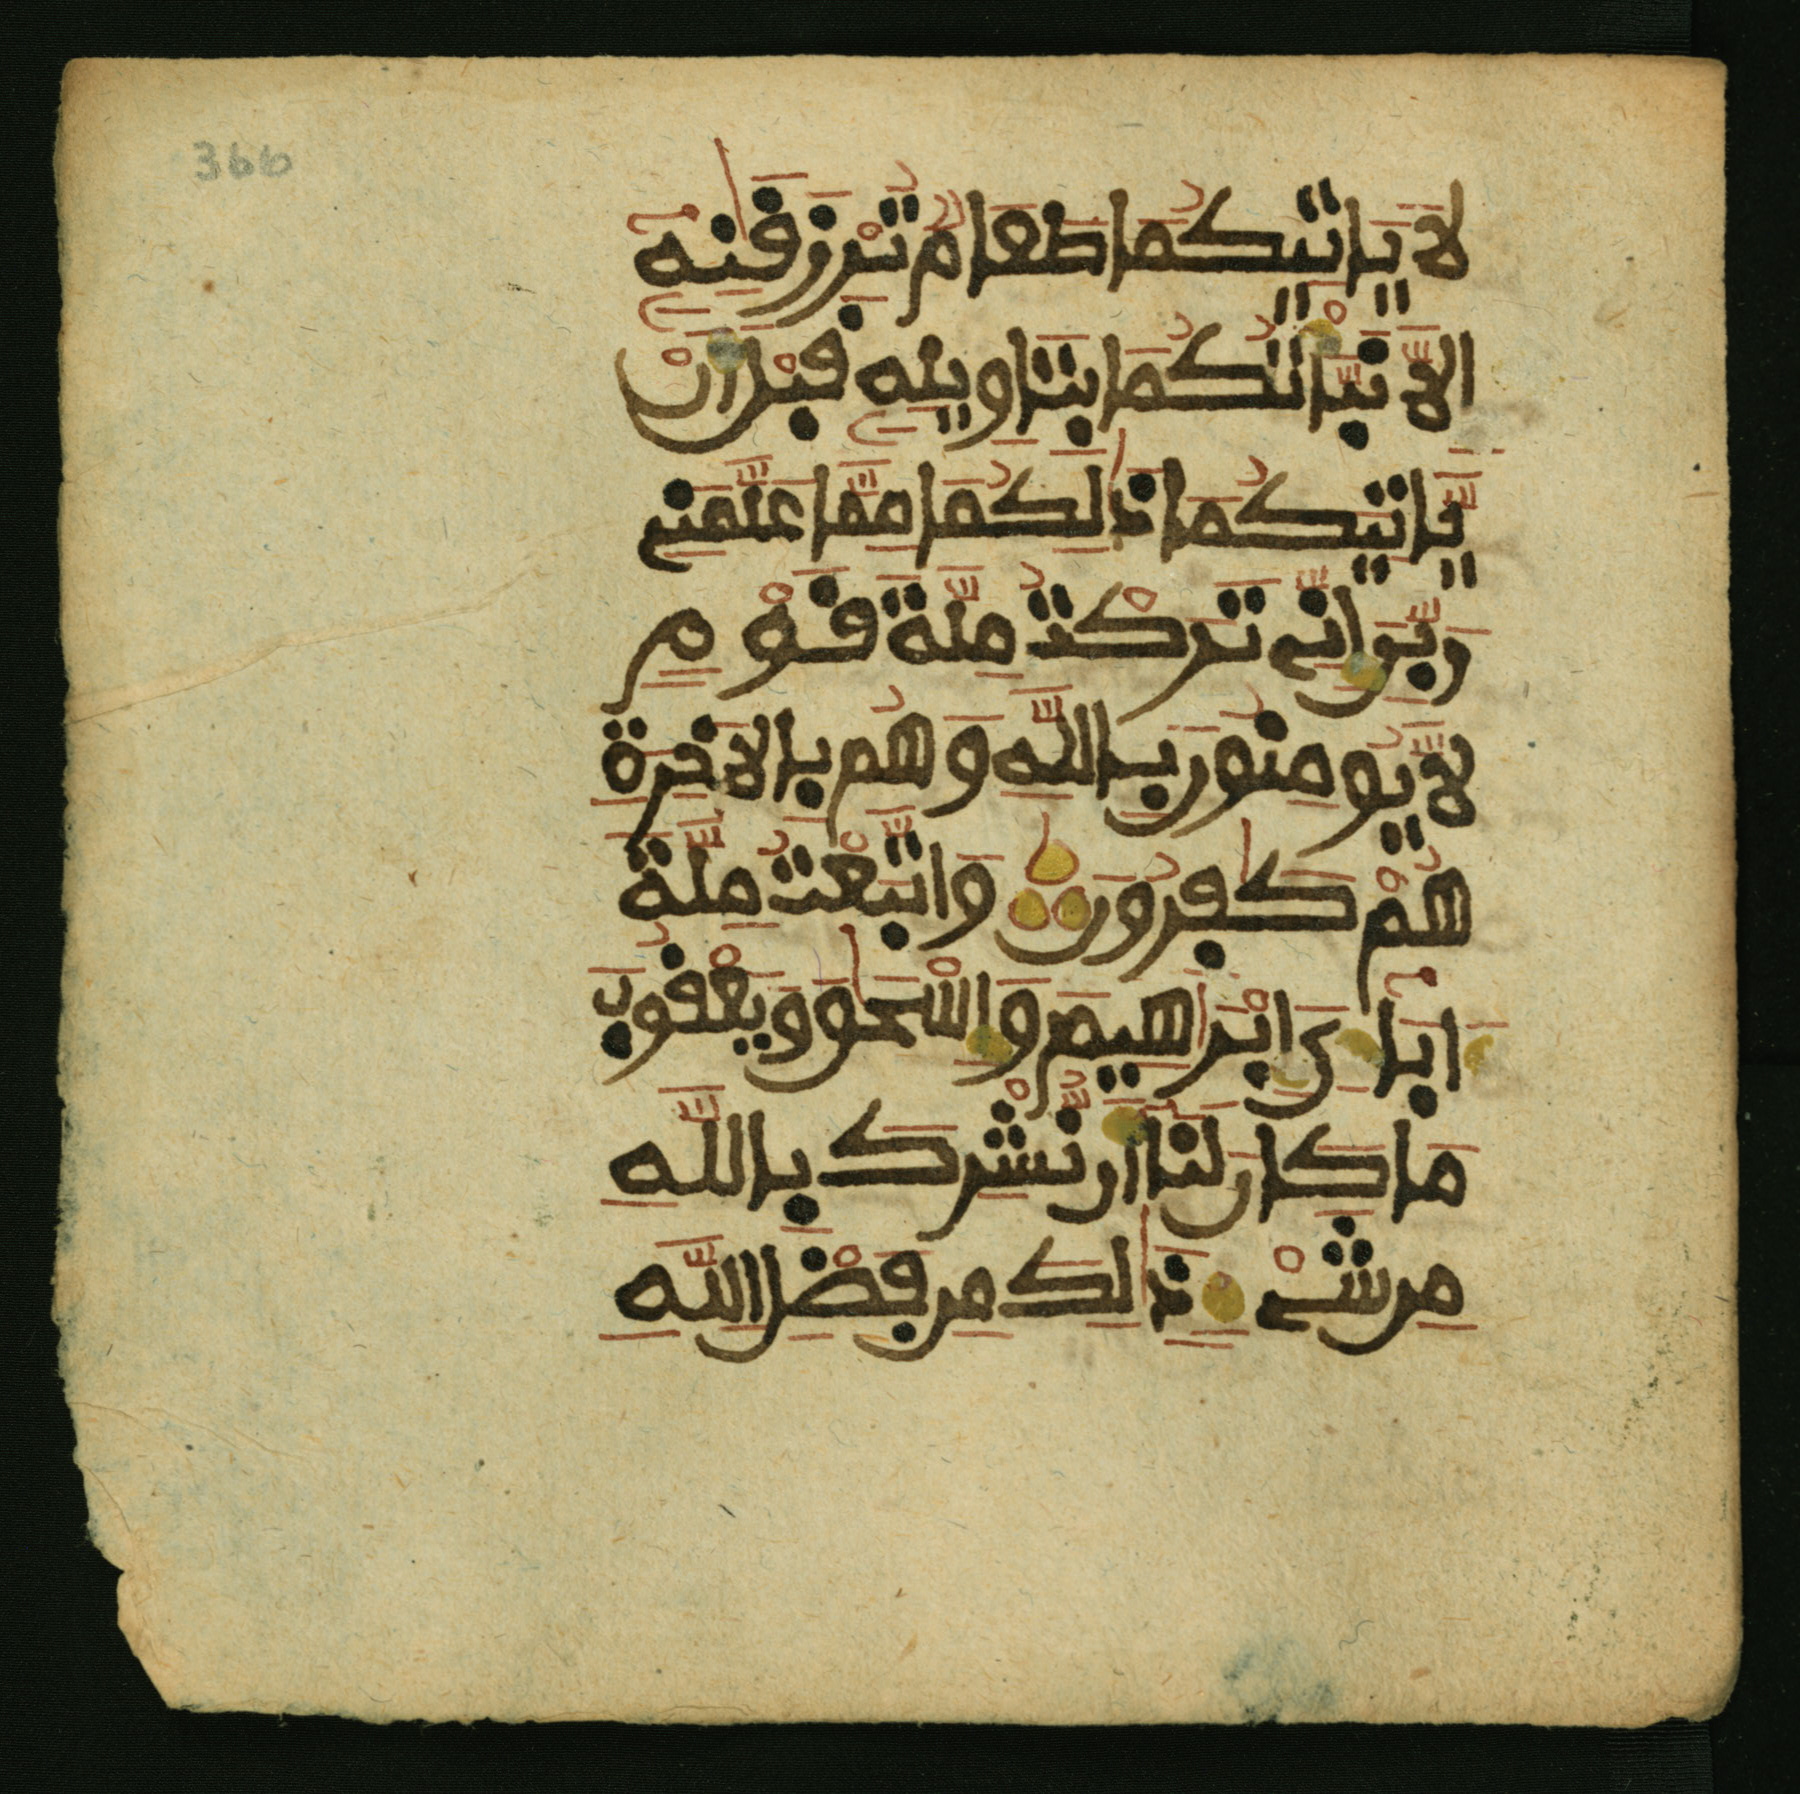 366
لَا يَاتِيكُمَا طَعَامٌ تُرْزَقَٰنِهِۦٓ
إِلَّا نَبَّأْتُكُمَا بِتَاوِيلِهِۦ قَبْلَ أَنْ
يَّاتِيَكُمَا ذَٰلِكُمَا مِمَّا عَلَّمَنِے
رَبِّيَ إِنِّے تَرَكْتُ مِلَّةَ قَوْمٍ
لَّا يُومِنُونَ بِاللَّهِ وَهُم بِالَاخِرَةِ
هُمْ كَٰفِرُونَ وَاتَّبَعْتُ مِلَّةَ
ءَابَآءِيَ إِبْرَٰهِيمَ وَإِسْحَٰقَ وَيَعْقُوبَ
مَا كَانَ لَنَآ أَن نُّشْرِكَ بِاللَّهِ
مِن شَےْءٍ ذَٰلِكَ مِن فَضْلِ اللَّهِ